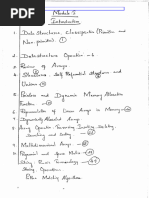 Module I
Introduction
1. Data Structures, Classification (Primitive and
Non-primitive) ①
2. Data structure Operation - 6
3. Review of Arrays
4. Structures, Self Referential Structure and
Unions
5. Pointers and Dynamic Memory Allocation
Function
6. Representation of Linear Arrays in Memory -
7. Dynamically Allocated Arrays
8. Array Operation: Traversing, Inserting, Deleting,
Searching, and Sorting -
9. Multidimensional Arrays -
10. Polynomials and Sparse Matrix
11. String, Basic Terminology -
String Operation
Pattern Matching Algorithms